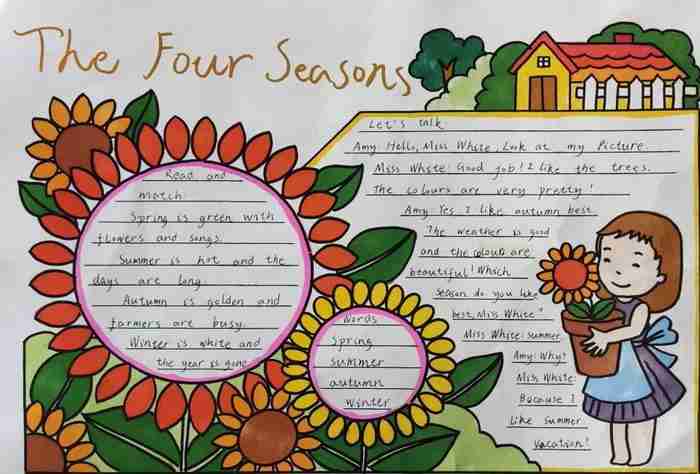 The Four Seasons
Read and
match
Spring is green with
flowers and songs.
Summer is hot and the
days are long.
Autumn is golden and
farmers are busy.
Winter is white and
the year is gone.
Words
spring
summer
autumn
winter
Let's talk
Amy: Hello, Miss White. Look at my picture.
Miss White: Good job! I like the trees.
The colours are very pretty!
Amy: Yes I like autumn best.
The weather is good
and the colours are
beautiful! Which
season do you like
best, Miss White?
Miss White: summer
Amy: Why?
Miss White:
Because I
like summer
vacation!